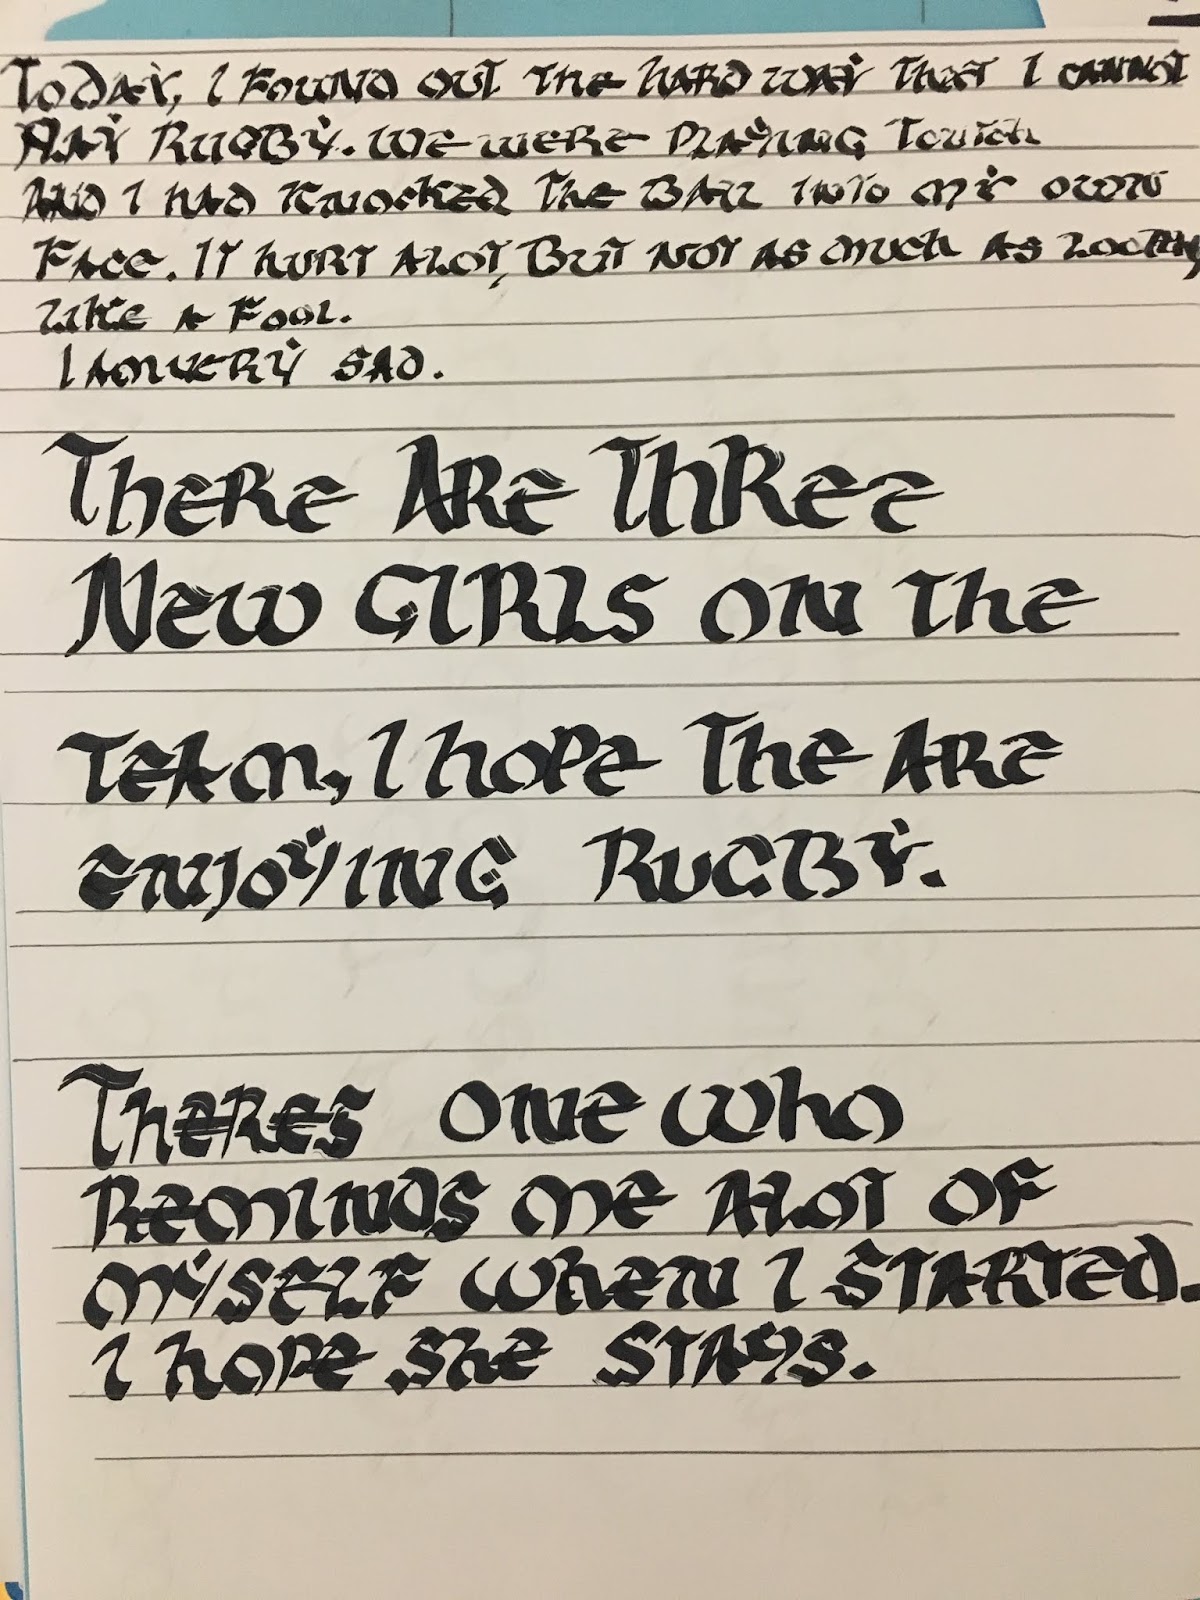 Today, I found out the hard way that I cannot
play Rugby. We were playing touch
and I had knocked the ball into my own
face. It hurt alot, but not as much as looking
like a fool.
I am very sad.
There are three
new girls on the
team, I hope the are
enjoying rugby.
Theres one who
reminds me alot of
myself when I started.
I hope she stays.